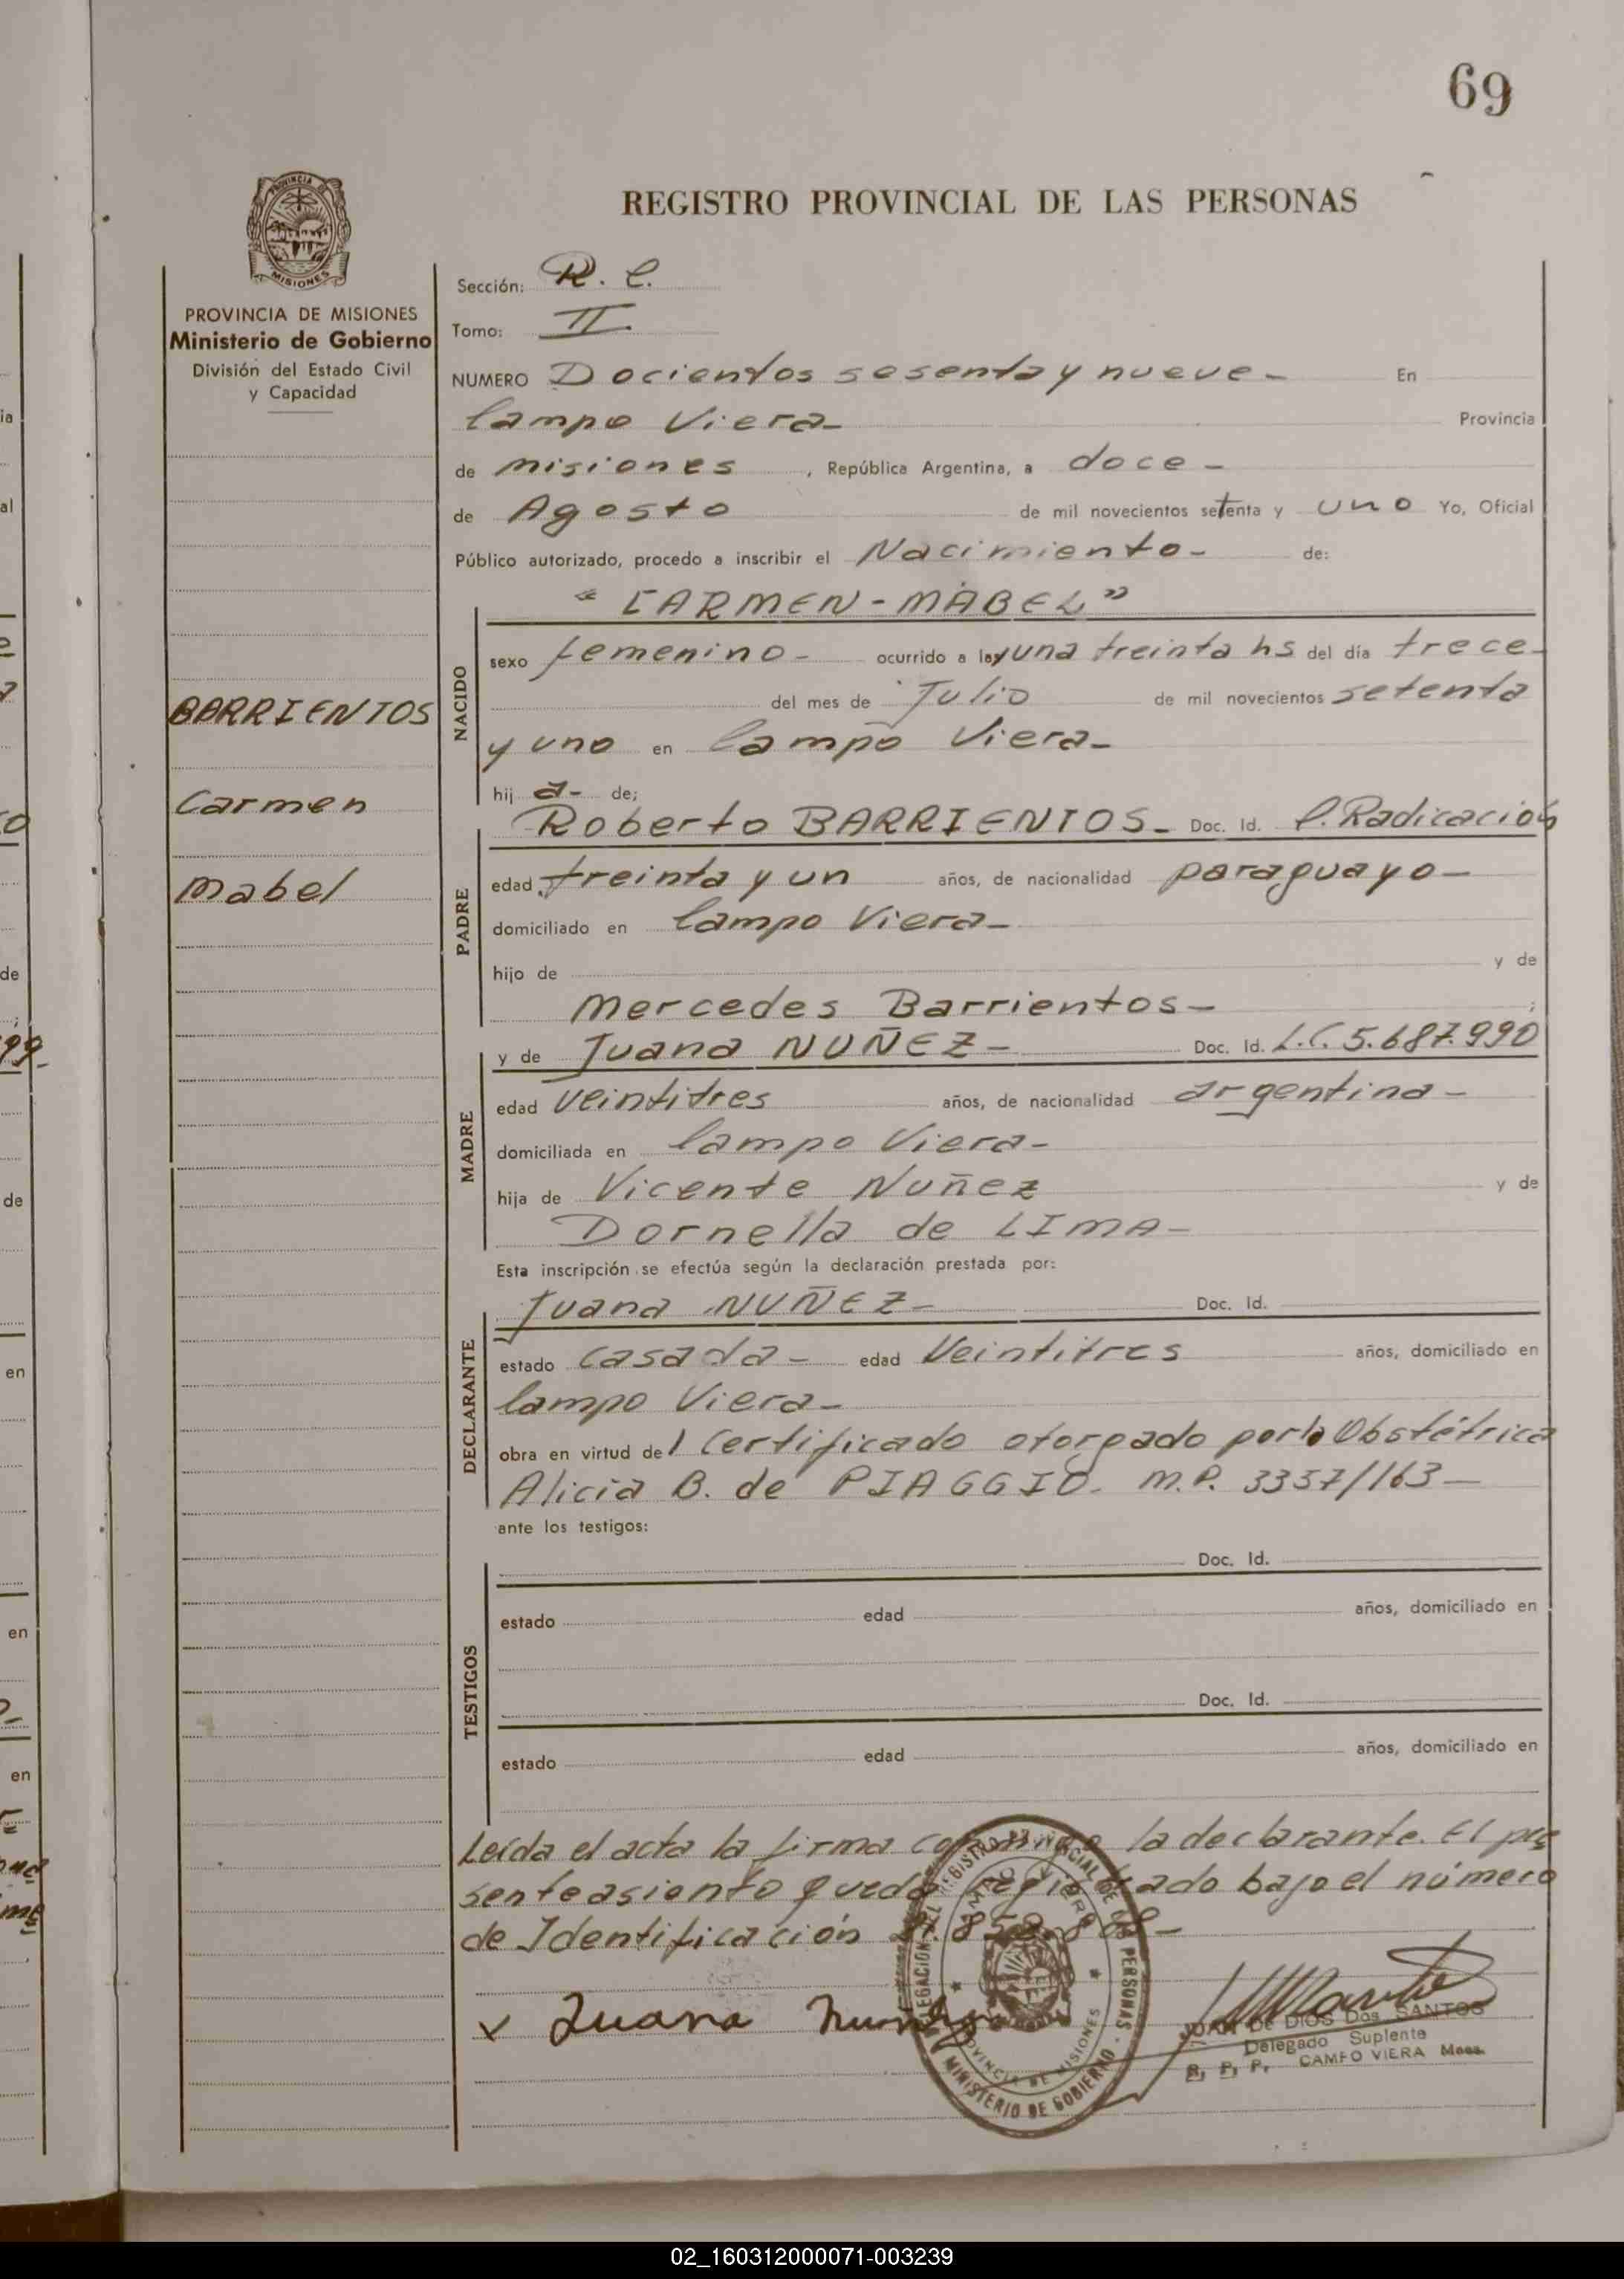 69
REGISTRO PROVINCIAL DE LAS PERSONAS
PROVINCIA DE
MISIONES
PROVINCIA DE MISIONES
Ministerio de Gobierno
División del Estado Civil
y Capacidad
BARRIENTOS
Carmen
Mabel
Sección: R. C.
Tomo: II
NUMERO Docientos sesenta y nueve - En
Campo Viera - Provincia
de misiones , República Argentina, a doce -
de Agosto de mil novecientos setenta y uno Yo, Oficial
Público autorizado, procedo a inscribir el Nacimiento - de:
"CARMEN - MABEL"
NACIDO
sexo femenino - ocurrido a la una treinta hs del día trece -
del mes de Julio de mil novecientos setenta
y uno en Campo Viera -
hij a - de;
PADRE
Roberto BARRIENTOS - Doc. Id. P. Radicación
edad treinta y un años, de nacionalidad paraguayo -
domiciliado en Campo Viera -
hijo de y de
Mercedes Barrientos - ;
MADRE
y de Juana NUÑEZ - Doc. Id. L.C. 5.687.990
edad veintitres años, de nacionalidad argentina -
domiciliada en Campo Viera -
hija de Vicente Nuñez y de
Dornella de LIMA -
Esta inscripción se efectúa según la declaración prestada por:
DECLARANTE
Juana NUÑEZ - Doc. Id.
estado casada - edad Veintitres años, domiciliado en
Campo Viera -
obra en virtud del Certificado otorgado por la Obstétrica
Alicia B. de PIAGGIO. M.P. 3357/163 -
ante los testigos:
TESTIGOS
Doc. Id.
estado edad años, domiciliado en
Doc. Id.
estado edad años, domiciliado en
Leída el acta la firma conmigo la declarante. El pre
sente asiento queda registrado bajo el número
de Identificación
x Juana Nuñez
DELEGACION DEL REGISTRO PROVINCIAL DE LAS PERSONAS
CAMPO VIERA
PROVINCIA DE MISIONES
MINISTERIO DE GOBIERNO
JUAN DE DIOS Dos SANTOS
Delegado Suplente
R. P. P. CAMPO VIERA Mnes.
02_160312000071-003239